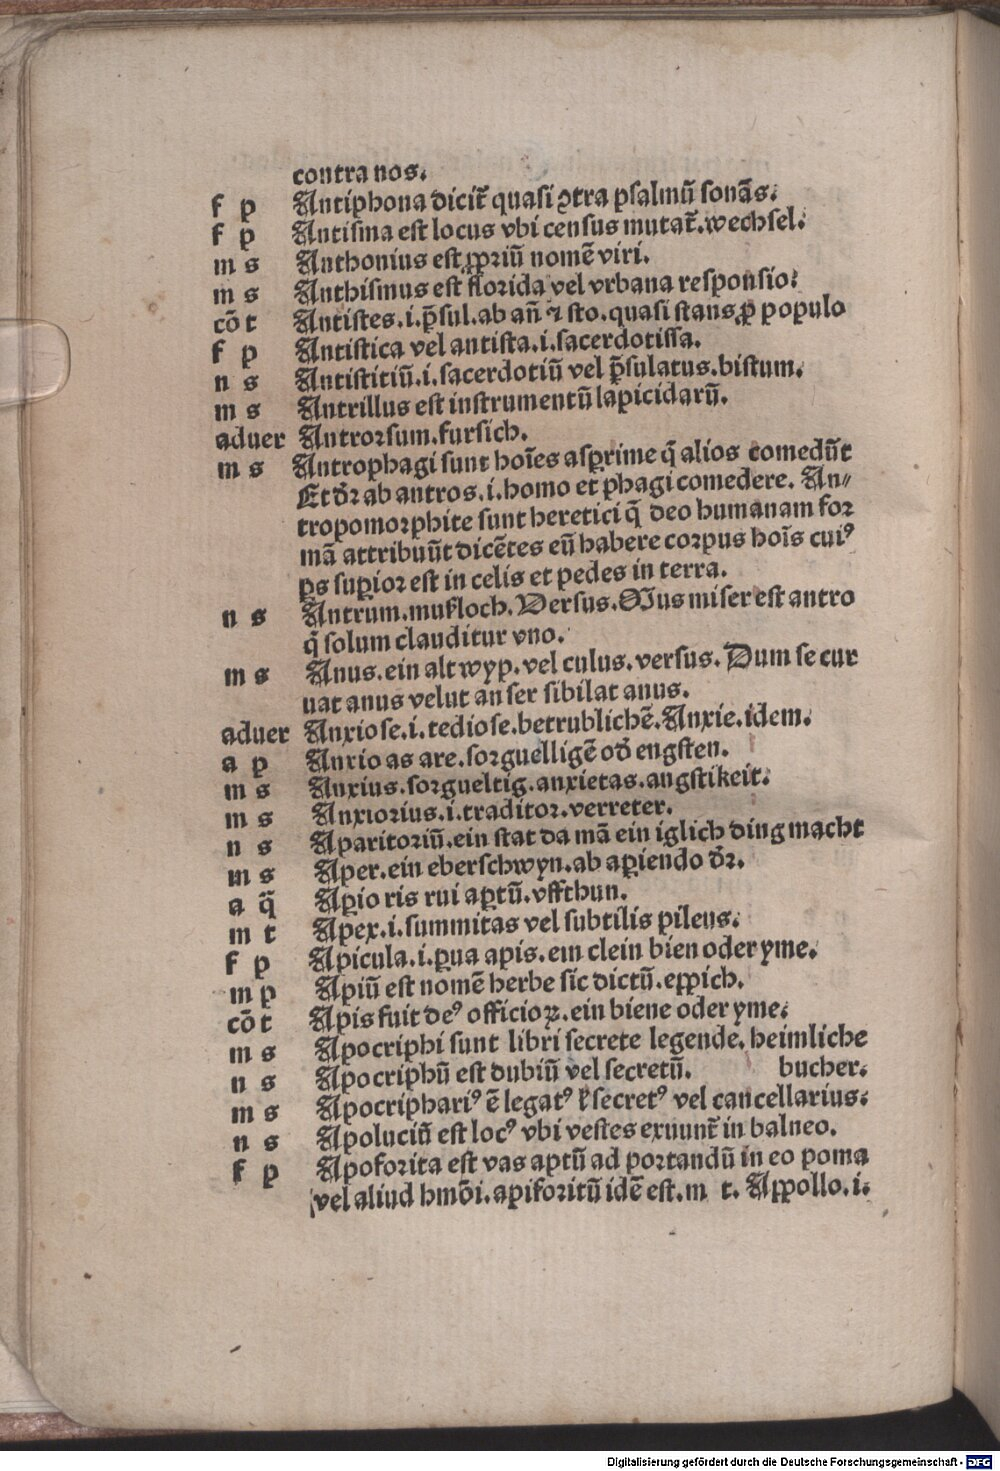 contra nos.
f p Antiphona dicit̃ quasi ꝯtra psalmū sonãs.
f p Antisma est locus vbi census mutat̃. wechsel.
m s Anthonius est ꝓpriū nomē viri.
m s Anthismus est florida vel vrbana responsio.
cõ t Antistes .i. p̄sul. ab añ ⁊ sto. quasi stans ꝓ populo
f p Antistica vel antista .i. sacerdotissa.
n s Antistitiū .i. sacerdotiū vel p̄sulatus. bistum.
m s Antrillus est instrumentū lapicidarū.
aduer Antrorsum. fursich.
m s Antrophagi sunt hoĩes asꝑrime q̃ alios comedũt
Et dr̃ ab antros .i. homo et phagi comedere. An⸗
tropomorphite sunt heretici q̃ deo humanam for
mã attribuũt dicẽtes eũ habere corpus hoĩs cuiꝰ
ps suꝑior est in celis et pedes in terra.
n s Antrum. mußloch. Versus. Mus miser est antro
q̃ solum clauditur vno.
m s Anus. ein alt wyp. vel culus. versus. Dum se cur
uat anus velut anser sibilat anus.
aduer Anxiose .i. tediose. betrublichẽ. Anxie. idem.
a p Anxio as are. sorguelligẽ od̃ engsten.
m s Anxius. sorgueltig. anxietas. angstikeit.
m s Anxiorius .i. traditor. verreter.
n s Aparitoriũ. ein stat da mã ein iglich ding macht
m s Aper. ein eberschwyn. ab aꝑiendo dr̃.
a q̃ Aꝑio ris rui aꝑtũ. vffthun.
m t Apex .i. summitas vel subtilis pileus.
f p Apicula .i. ꝑua apis. ein clein bien oder yme.
m p Apiũ est nomẽ herbe sic dictũ. eppich.
cõ t Apis fuit deꝰ officioꝝ. ein biene oder yme.
m s Apocriphi sunt libri secrete legende. heimliche
n s Apocriphũ est dubiũ vel secretũ. bucher.
m s Apocriphariꝰ ẽ legatꝰ ł secretꝰ vel cancellarius.
n s Apoluciũ est locꝰ vbi vestes exuunt̃ in balneo.
f p Apoforita est vas aptũ ad portandũ in eo poma
vel aliud hmõi. apiforitũ idẽ est. m t. Appollo .i.
Digitalisierung gefördert durch die Deutsche Forschungsgemeinschaft - DFG